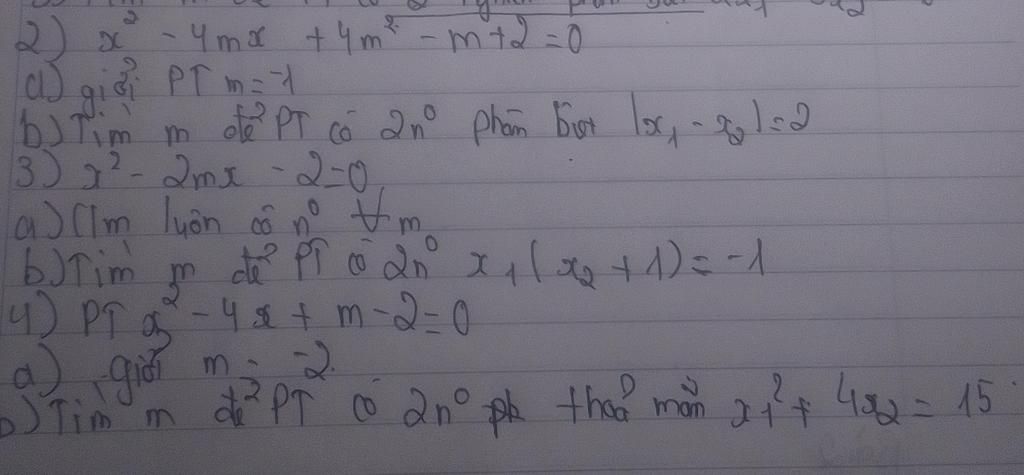 2) x² - 4mx + 4m² - m + 2 = 0
a) giải PT m = -1
b) Tìm m để PT có 2n⁰ phân biệt |x₁ - x₂| = 2
3) x² - 2mx - 2 = 0
a) Cm luôn có n⁰ ∀m
b) Tìm m để PT có 2n⁰ x₁(x₂ + 1) = -1
4) PT x² - 4x + m - 2 = 0
a) giải m = -2
b) Tìm m để PT có 2n⁰ thoả mãn x₁² + 4x₂ = 15